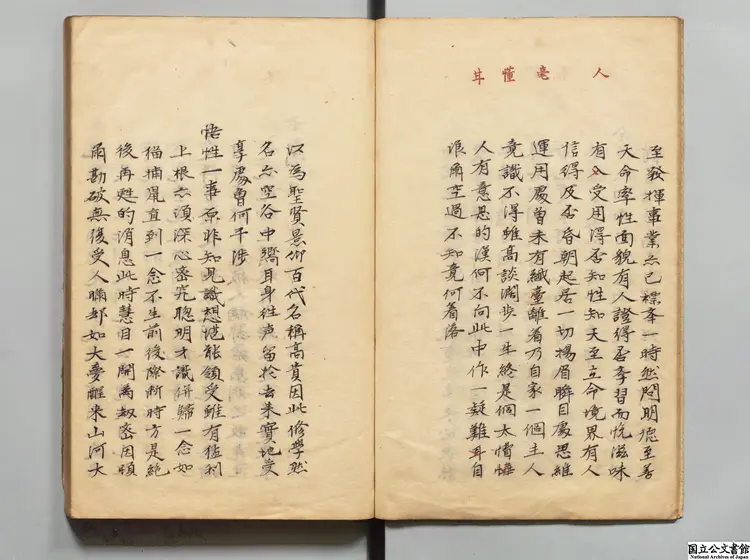 人毫懂耳
至發揮事業亦已標奉一時然問明德至善
天命率性面貌有人證得否學習而悅滋味
有人受用得否知性知天至立命境界有人
信得及否昏朝起居一切揚眉瞬目處思維
運用處曾未有纖毫離着乃自家一個主人
竟識不得雖高談濶步一生終是個大懵懂
人有意思的漢何不向此中作一疑難耳自
浪爾空過不知竟何着落
以為聖賢景仰百代名稱高貴因此修學然
名亦空谷中響耳身往声留於去來實地受
享處曾何干涉
悟性一事原非知見識想能領受雖有猛利
上根亦須深心密究聰明才識併歸一念如
猫捕鼠直到一念不生前後際斷時方是絕
後再甦的消息此時慧目一開萬叔密因頓
爾勘破無復受人瞞却如大夢醒來山河大
国立公文書館
National Archives of Japan